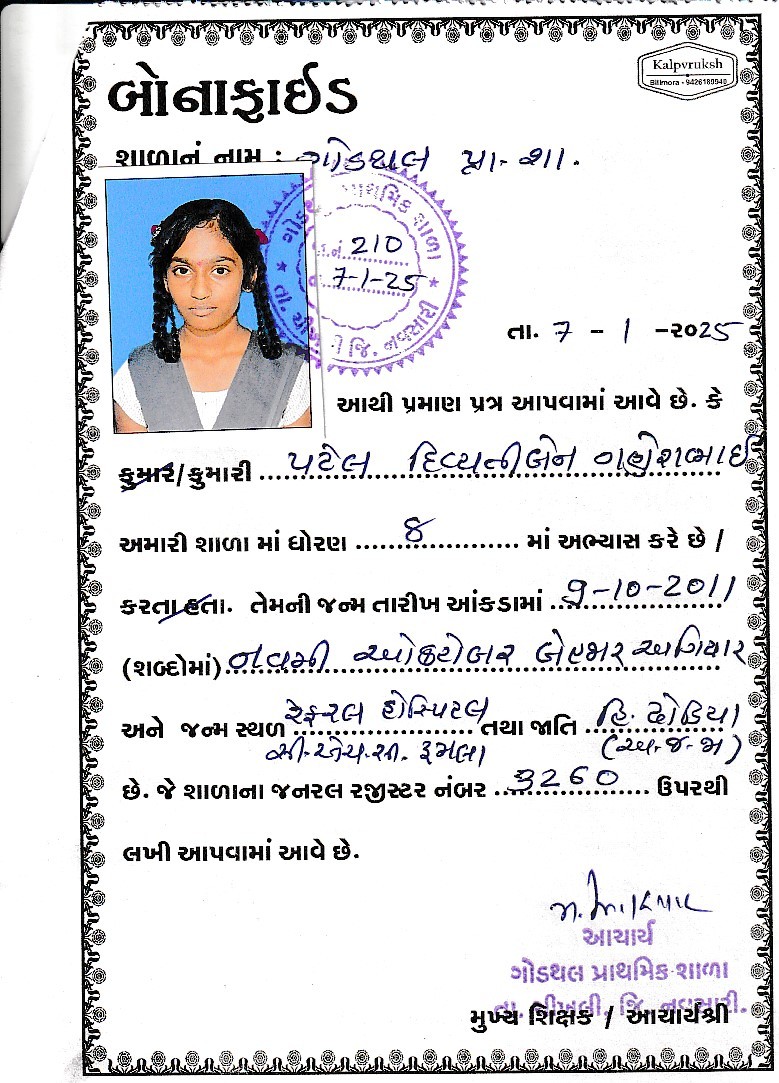 Kalpvruksh
Bilimora - 9426189940
બોનાફાઈડ
શાળાનું નામ : ગોડથલ પ્રા. શા.
પ્રાથમિક શાળા
210
7-1-25
જિ. નવસારી
તા. 7 - 1 - ૨૦25
આથી પ્રમાણ પત્ર આપવામાં આવે છે. કે
કુમાર/કુમારી પટેલ દિવ્યતીબેન ગણેશભાઈ
અમારી શાળા માં ધોરણ 8 માં અભ્યાસ કરે છે /
કરતા હતા. તેમની જન્મ તારીખ આંકડામાં 9-10-2011
(શબ્દોમાં) નવમી ઓક્ટોબર બેહજાર અગિયાર
અને જન્મ સ્થળ રેફરલ હોસ્પિટલ તથા જાતિ હિ. ઢોડિયા
સી.એચ.સી. રૂમલા (અ.જ.જા)
છે. જે શાળાના જનરલ રજીસ્ટર નંબર 3260 ઉપરથી
લખી આપવામાં આવે છે.
આચાર્ય
ગોડથલ પ્રાથમિક શાળા
તા. ચીખલી, જિ. નવસારી.
મુખ્ય શિક્ષક / આચાર્યશ્રી